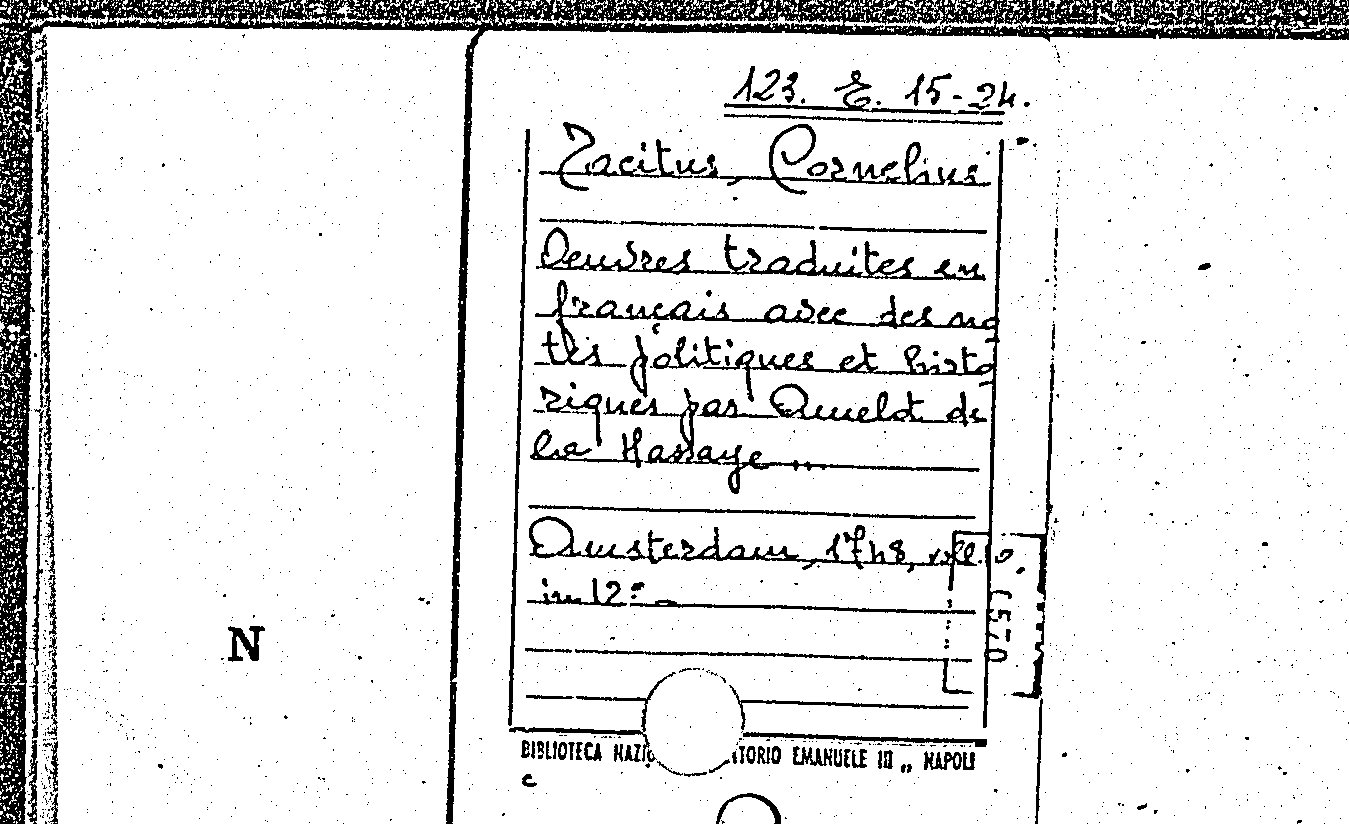 123. E. 15-24.
Tacitus, Cornelius
Oeuvres traduites en
français avec des no
tes politiques et histo
riques par Amelot de
la Hassaye ...
Amsterdam, 1748, voll. 10.
in 12° -
1570
N
BIBLIOTECA NAZIO TTORIO EMANUELE III „ NAPOLI
c